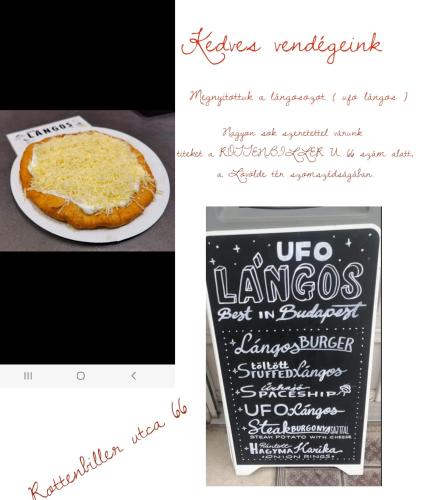 Kedves vendégeink
Megnyitottuk a lángosozót ( ufo lángos )
Nagyon sok szeretettel várunk
titeket a ROTTENBILLER U. 66 szám alatt,
a Lövölde tér szomszédságában.
LÁNGOS
UFO
LÁNGOS
Best in Budapest
Lángos BURGER
töltött
STUFFED Lángos
Űrhajó
SPACESHIP
UFO Lángos
Steak BURGONYA SAJTTAL
STEAK POTATO WITH CHEESE
Rántott
HAGYMA Karika
ONION RINGS
Rottenbiller utca 66